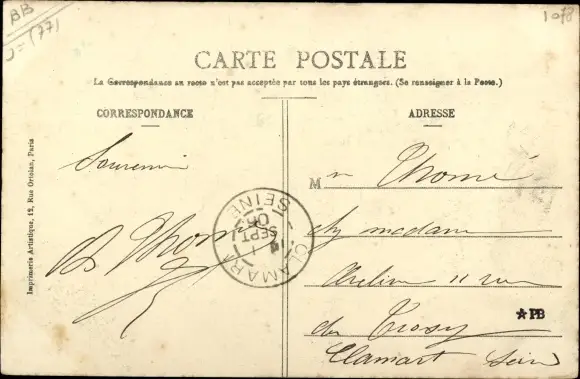 BB
(77)
1078
CARTE POSTALE
La Correspondance au recto n'est pas acceptée par tous les pays étrangers. (Se renseigner à la Poste.)
CORRESPONDANCE
Souvenir
Imprimerie Artistique, 12, Rue Ortolan, Paris
CLAMART
SEINE
SEPT
06
ADRESSE
M r Thomé
chy madame
11 rue
du Trosy
★PB
Clamart Seine